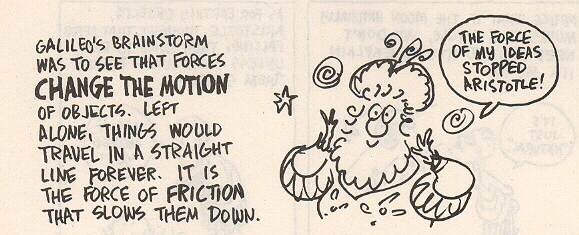 GALILEO'S BRAINSTORM
WAS TO SEE THAT FORCES
CHANGE THE MOTION
OF OBJECTS. LEFT
ALONE, THINGS WOULD
TRAVEL IN A STRAIGHT
LINE FOREVER. IT IS
THE FORCE OF FRICTION
THAT SLOWS THEM DOWN.
THE FORCE
OF MY IDEAS
STOPPED
ARISTOTLE!